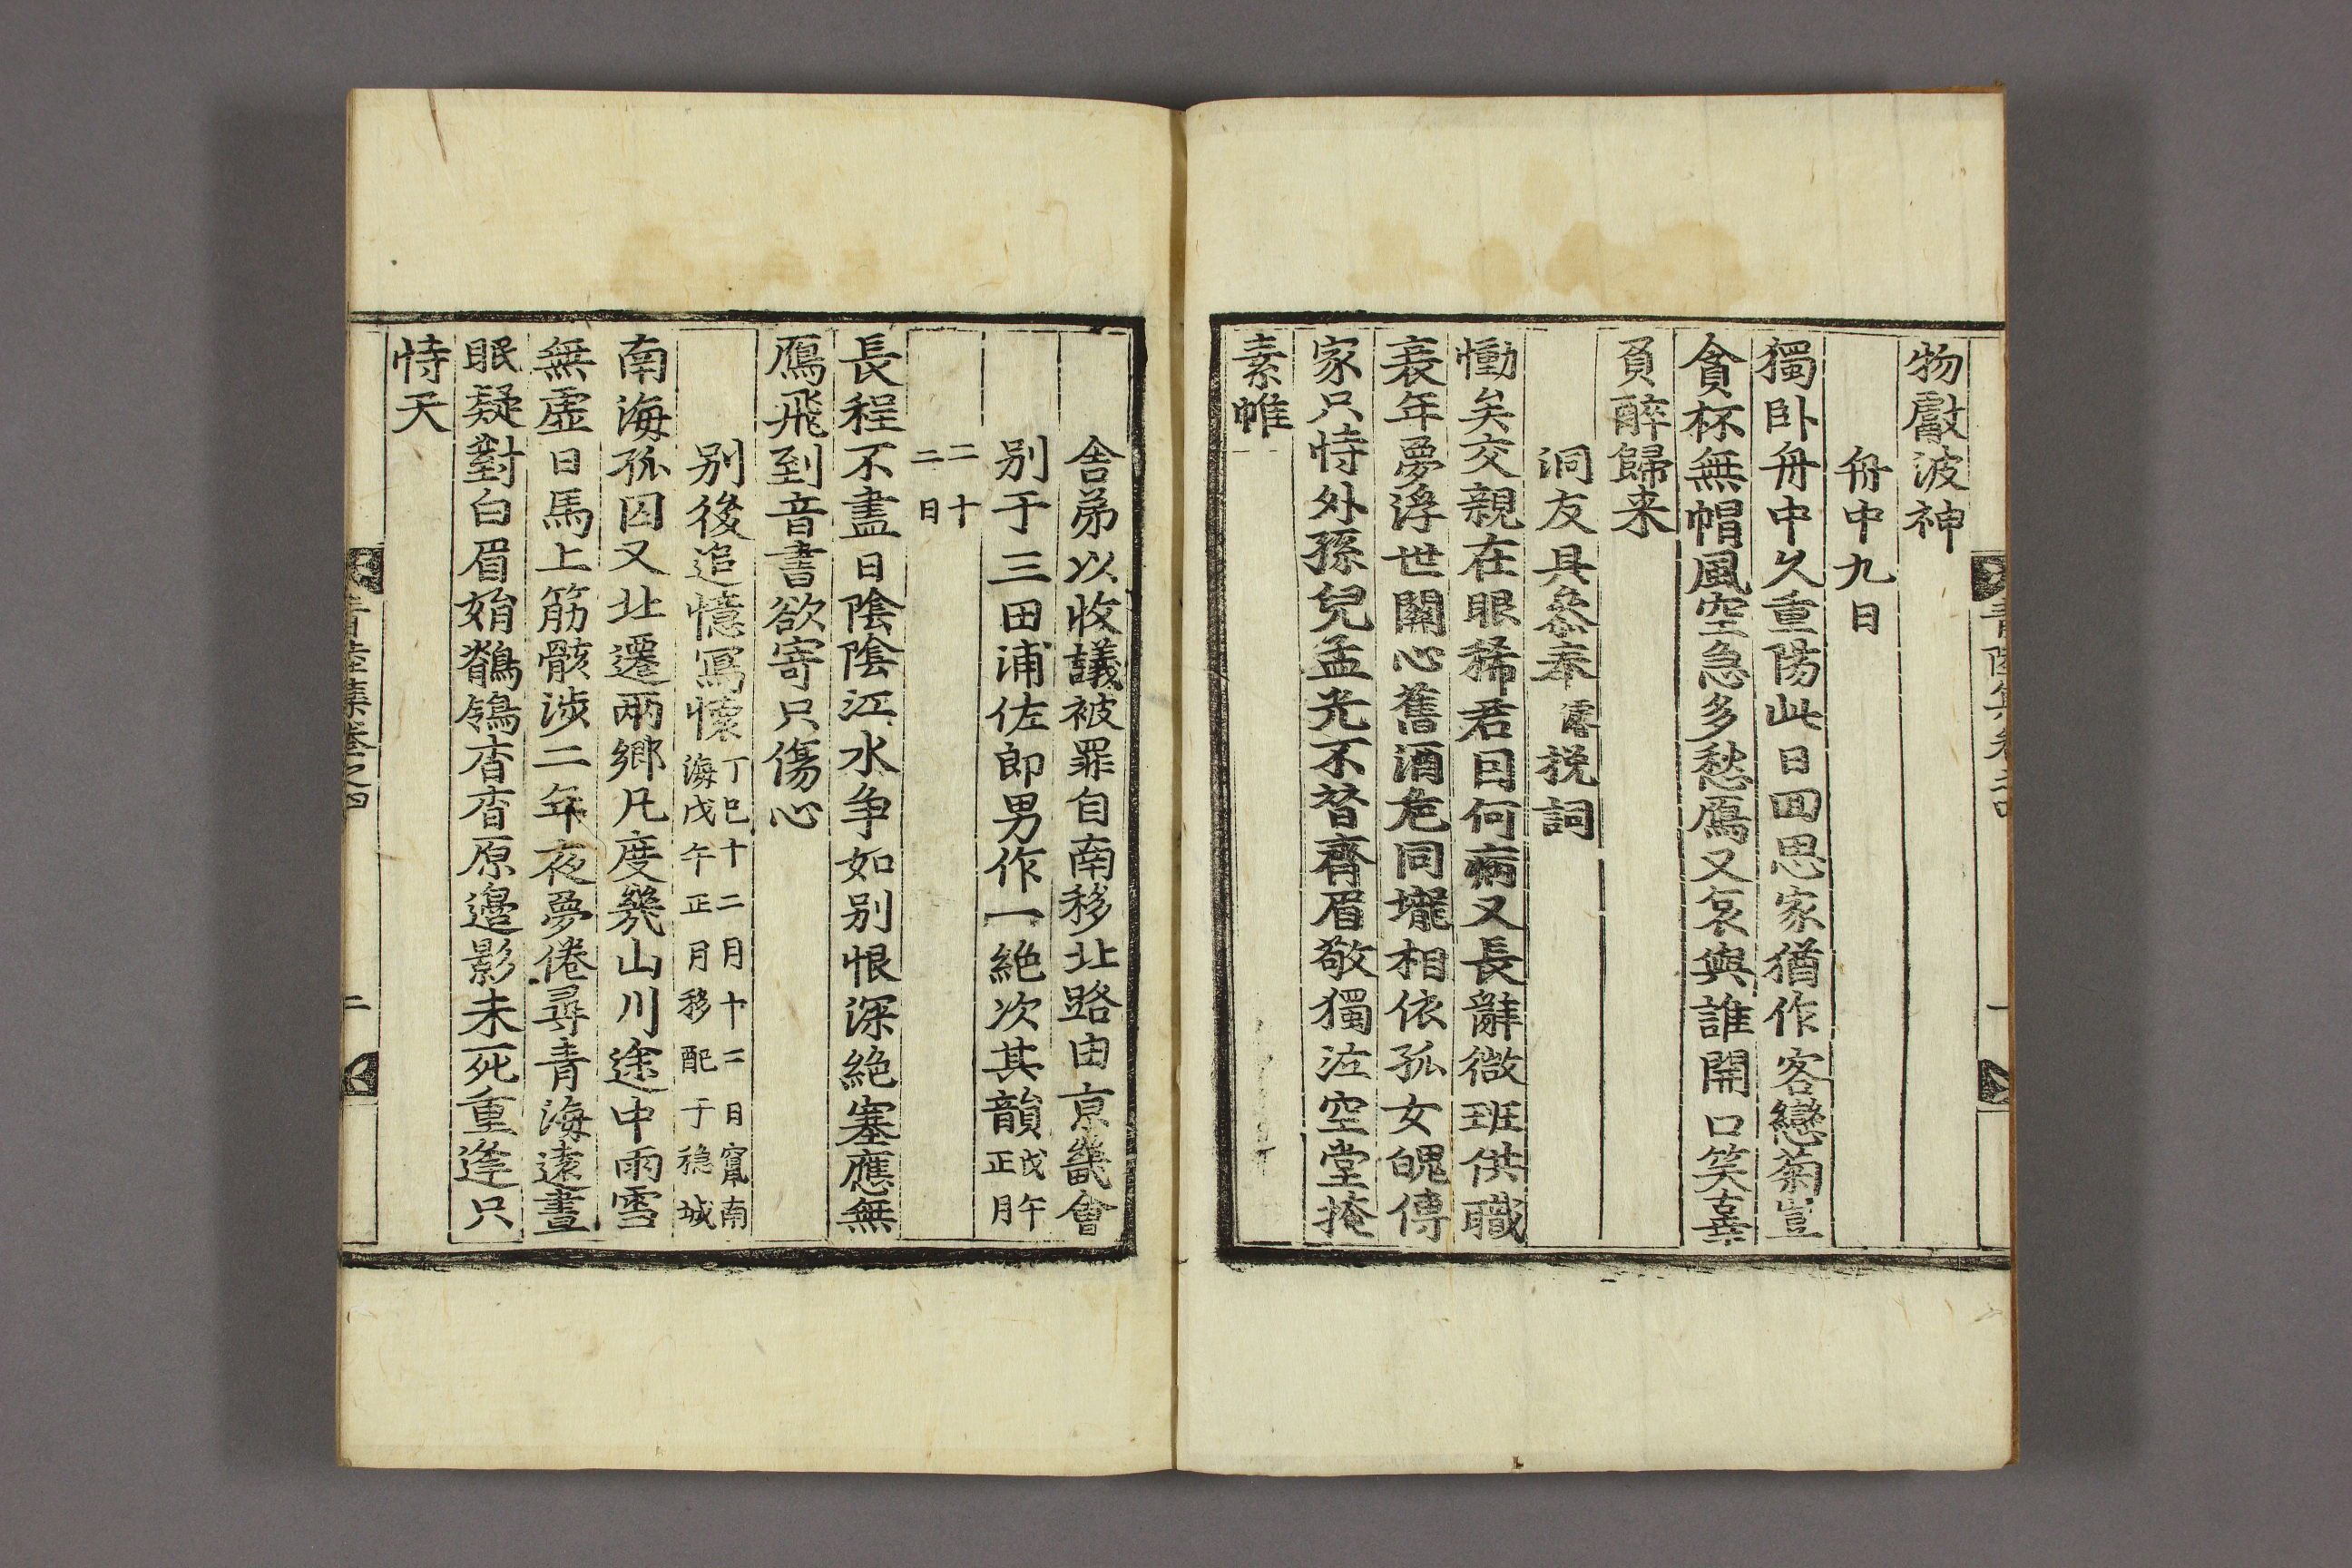 物獻波神
舟中九日
獨卧舟中久重陽此日回思家猶作客戀菊豈
貪杯無帽風空急多愁鴈又哀與誰開口笑辜
負醉歸来
洞友具參奉 挽詞
慟矣交親在眼稀君曰何病又長辭微班供職
衰年夢浮世關心舊酒巵同壠相依孤女魄傳
家只恃外孫兒孟光不替齊眉敬獨泣空堂掩
素帷
舍弟以收議被罪自南移北路由京畿會
別于三田浦佐郎男作一絶次其韻戊午正月
二十二日
長程不盡日陰陰江水争如別恨深絶塞應無
鴈飛到音書欲寄只傷心
別後追憶寫懷丁巳十二月十二日竄南海戊午正月移配于穏城
南海孤囚又北遷兩鄉凡度幾山川途中雨雪
無虛日馬上筋骸涉二年夜夢倦尋青海遠晝
眠疑對白眉妍鶺鴒杳杳原邉影未死重逢只
恃天
青陸集卷之四
二